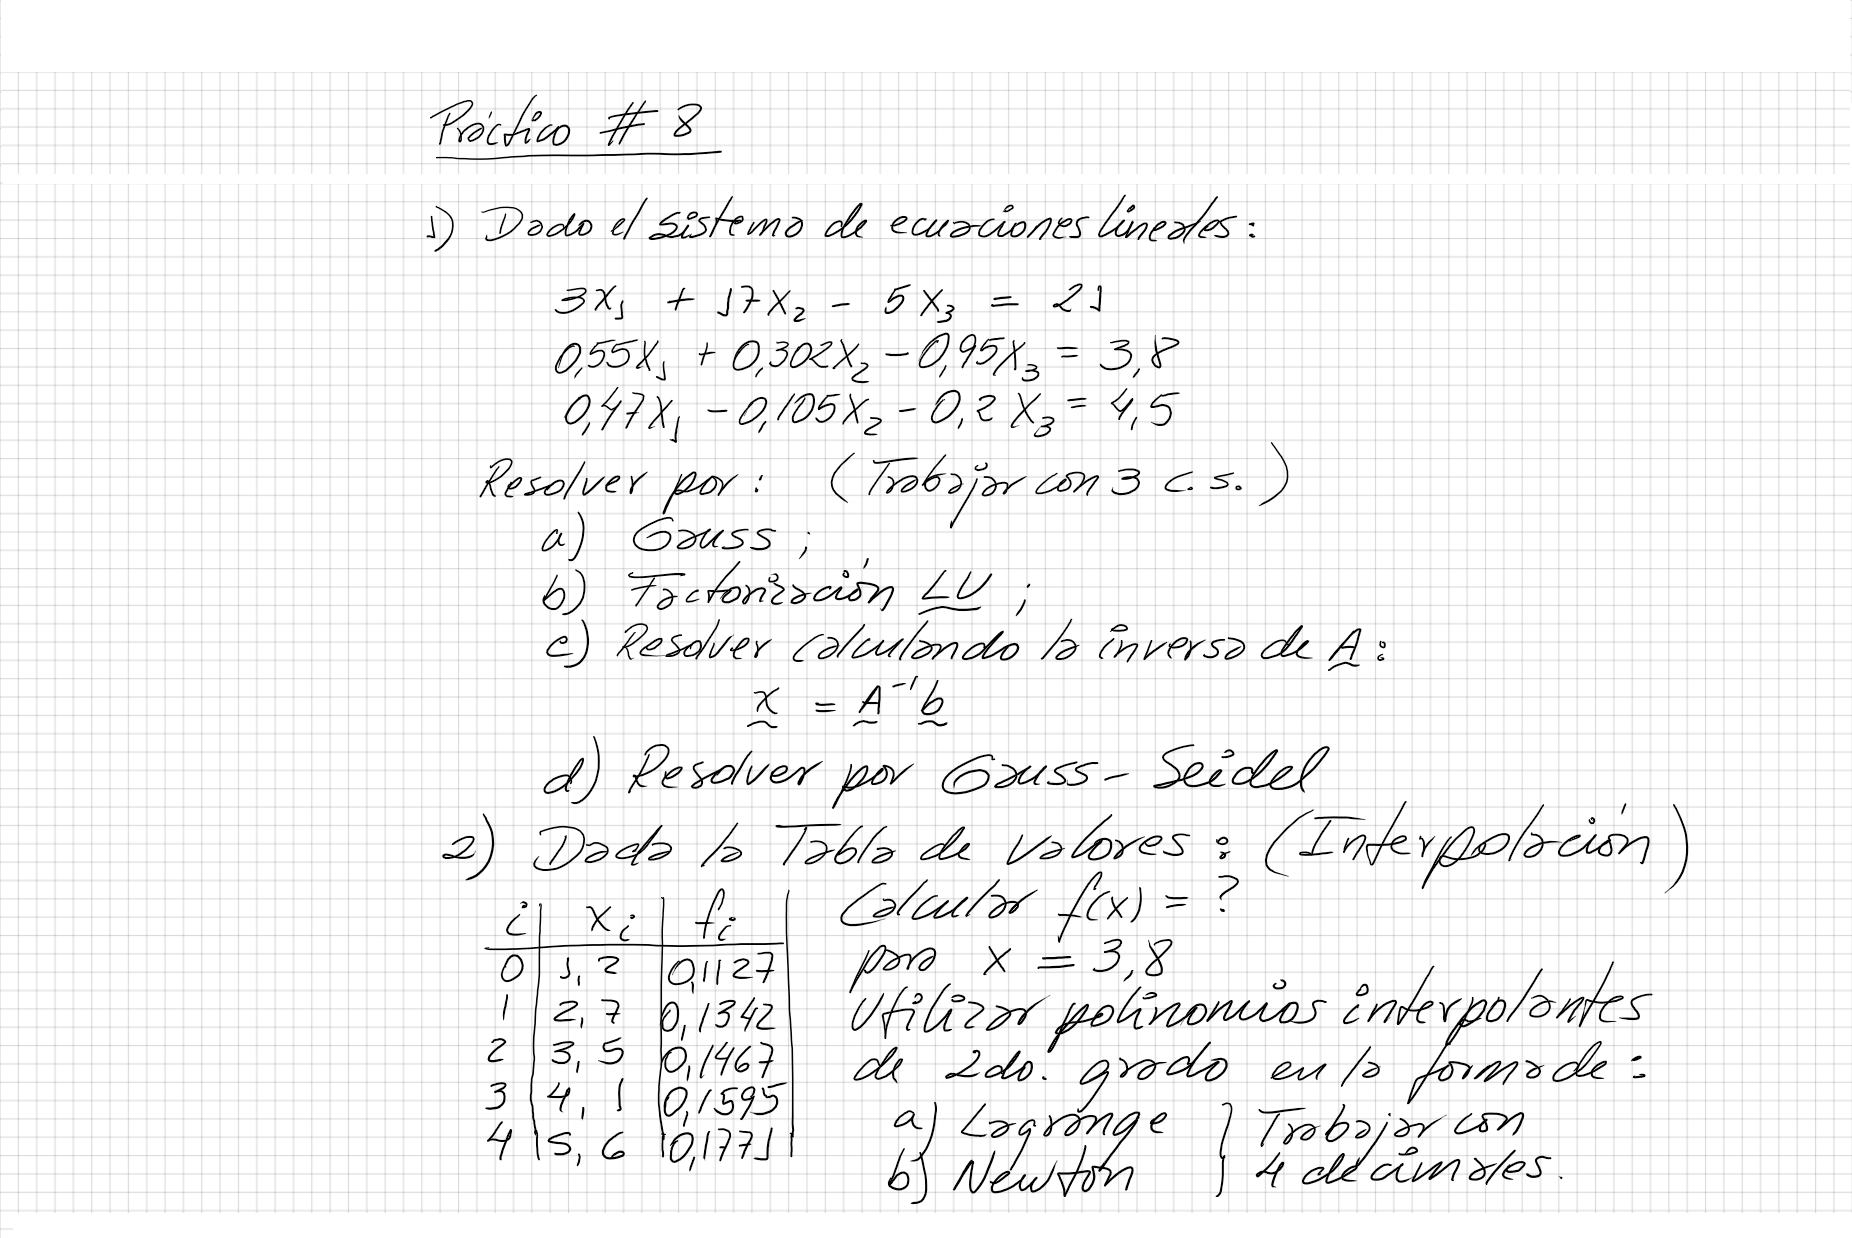 Práctico # 8
1) Dado el sistema de ecuaciones lineales:
3x₁ + 17x₂ - 5x₃ = 21
0,55x₁ + 0,302x₂ - 0,95x₃ = 3,8
0,47x₁ - 0,105x₂ - 0,2x₃ = 4,5
Resolver por: (Trabajar con 3 c.s.)
a) Gauss;
b) Factorización LU;
c) Resolver calculando la inversa de A:
x = A⁻¹b
d) Resolver por Gauss-Seidel
2) Dada la Tabla de valores: (Interpolación)
i | xᵢ | fᵢ
0 | 1,2 | 0,1127
1 | 2,7 | 0,1342
2 | 3,5 | 0,1467
3 | 4,1 | 0,1595
4 | 5,6 | 0,1771
Calcular f(x) = ?
para x = 3,8
Utilizar polinomios interpolantes
de 2do. grado en la forma de:
a) Lagrange } Trabajar con
b) Newton } 4 decimales.